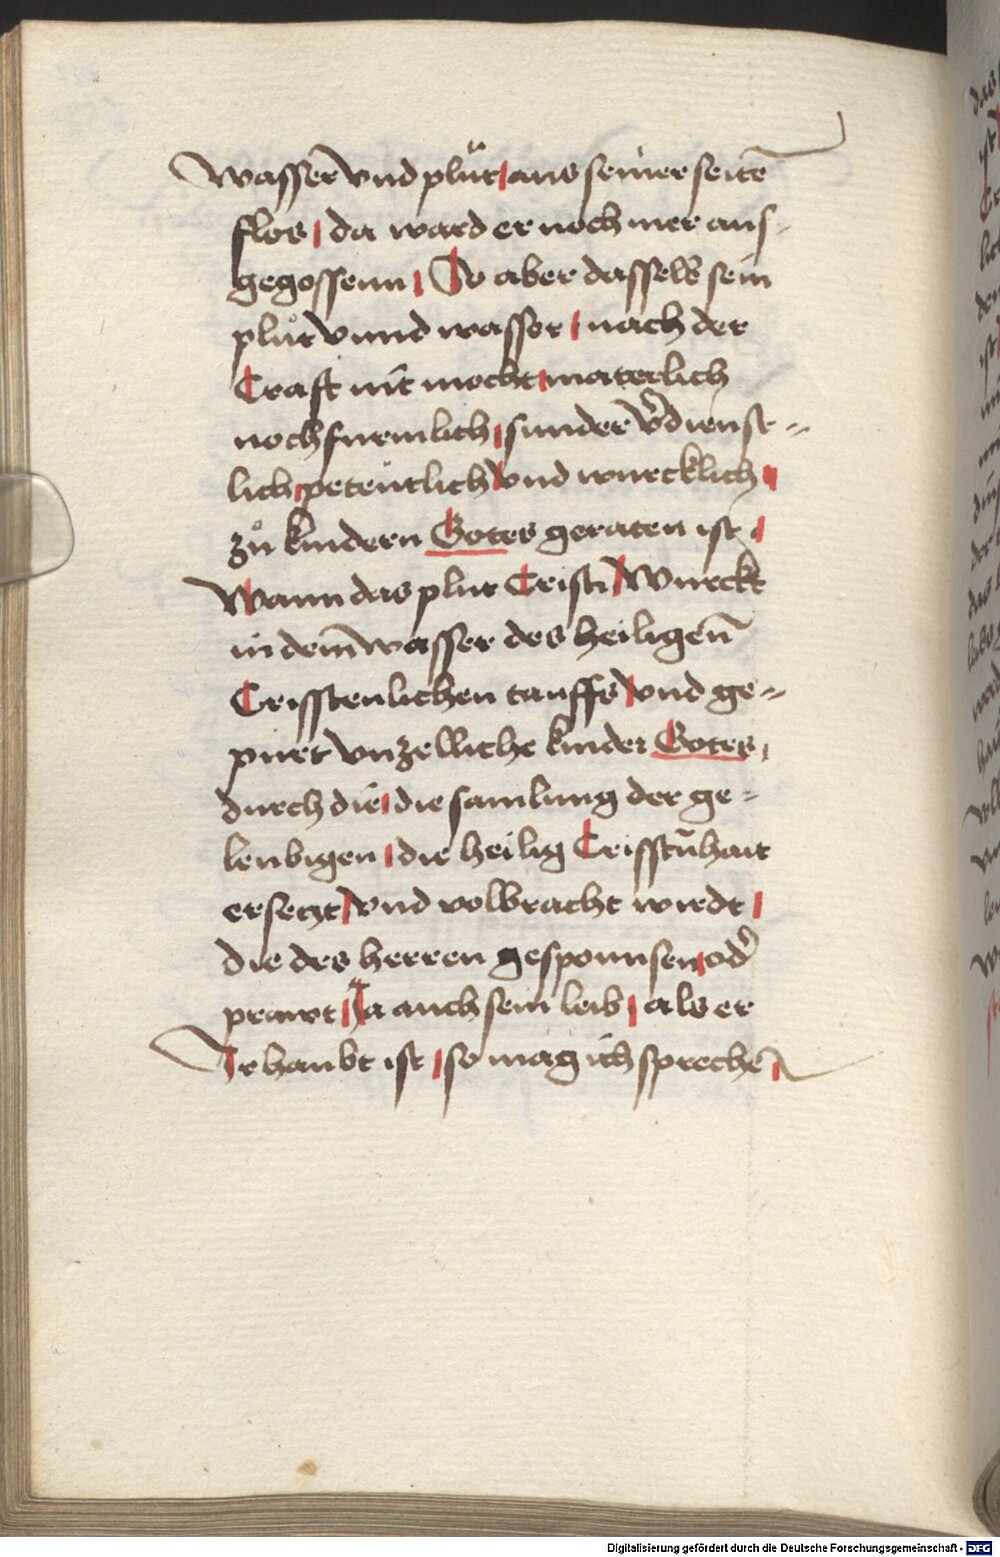 Wasser vnd pluͦt aus seiner seitē
flos da ward er noch mer aus-
gegossenn So aber dasselb sein
pluͦt vnnd wasser nach der
Craft nit mocht materlich
noch furmlich sunder v̉dienst-
lich petentlich vnd wurcklich
zuͦ kindern Gotes geraten ist
Wann das plut Cristi Wurckt
in dem wasser des heiligen̄
Crisstenlichen tauffs vnd ge-
purt vnzelliche kinder Gotes
durch die die samlung der ge-
leubigen die heilig Crisstn̄hait
ersetzt vnd volbracht wirdt
die des herren gesponnsen od̉
prawt Ja auch sein leib als er
Ir haubt ist so mag ich sprechē
Digitalisierung gefördert durch die Deutsche Forschungsgemeinschaft - DFG